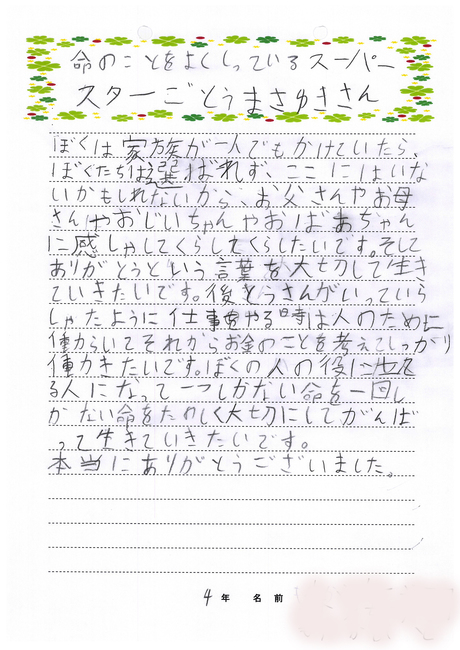 命のことをよくしっているスーパー
スターごとうまさゆきさん
ぼくは家族が一人でもかけていたら、
ぼくたちは選ばれず、ここにはいな
いかもしれないから、お父さんやお母
さんやおじいちゃんやおばあちゃん
に感しゃしてくらしてくらしたいです。そして
ありがとうという言葉を大切して生き
ていきたいです。後とうさんがいっていら
しゃたように仕事をやる時は人のために
働からいてそれからお金のことを考えてしっかり
働かきたいです。ぼくの人の役に立
る人になって一つしかない命を一回し
かない命をたのしく大切にしてがんば
って生きていきたいです。
本当にありがとうございました。
4年 名前